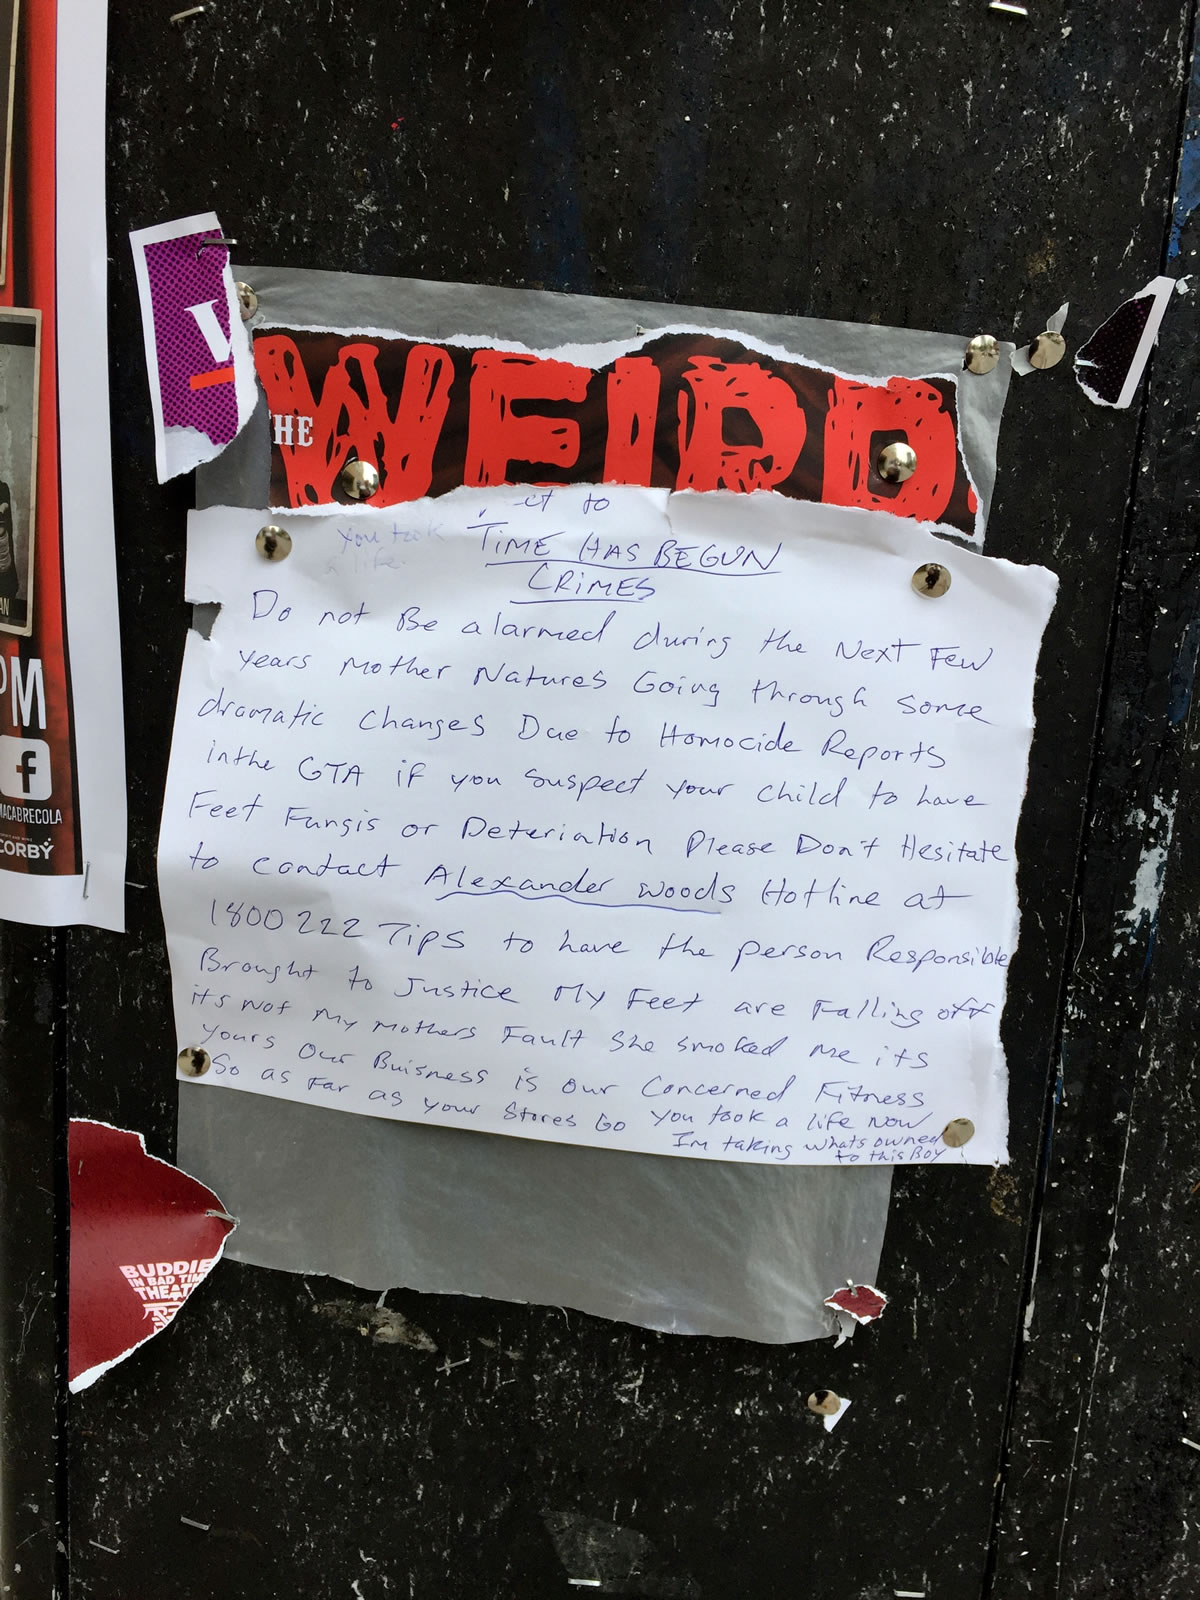 V
HE WEIRD
to
you took
a life.
TIME HAS BEGUN
CRIMES
Do not Be alarmed during the Next Few
years Mother Natures Going through some
dramatic changes Due to Homocide Reports
inthe GTA if you suspect your child to have
Feet Fungis or Deteriation Please Don't Hesitate
to contact Alexander woods Hotline at
1800 222 Tips to have the person Responsible
Brought to Justice My Feet are Falling off
it's not my mothers Fault she smoked me its
yours Our Buisness is our Concerned Fitness
So as Far as your Stores Go you took a life now
I'm taking whats owned
to this Boy
OM
f
MACABRECOLA
CORBY
AN
BUDDIE
IN BAD TIM
THEAT